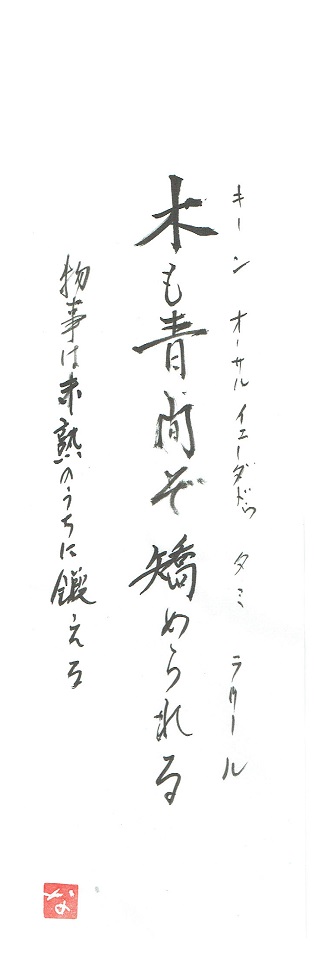 キーン オーサル イェーダドゥ タミ ラリール
木も青間ぞ矯められる
物事は未熟のうちに鍛える